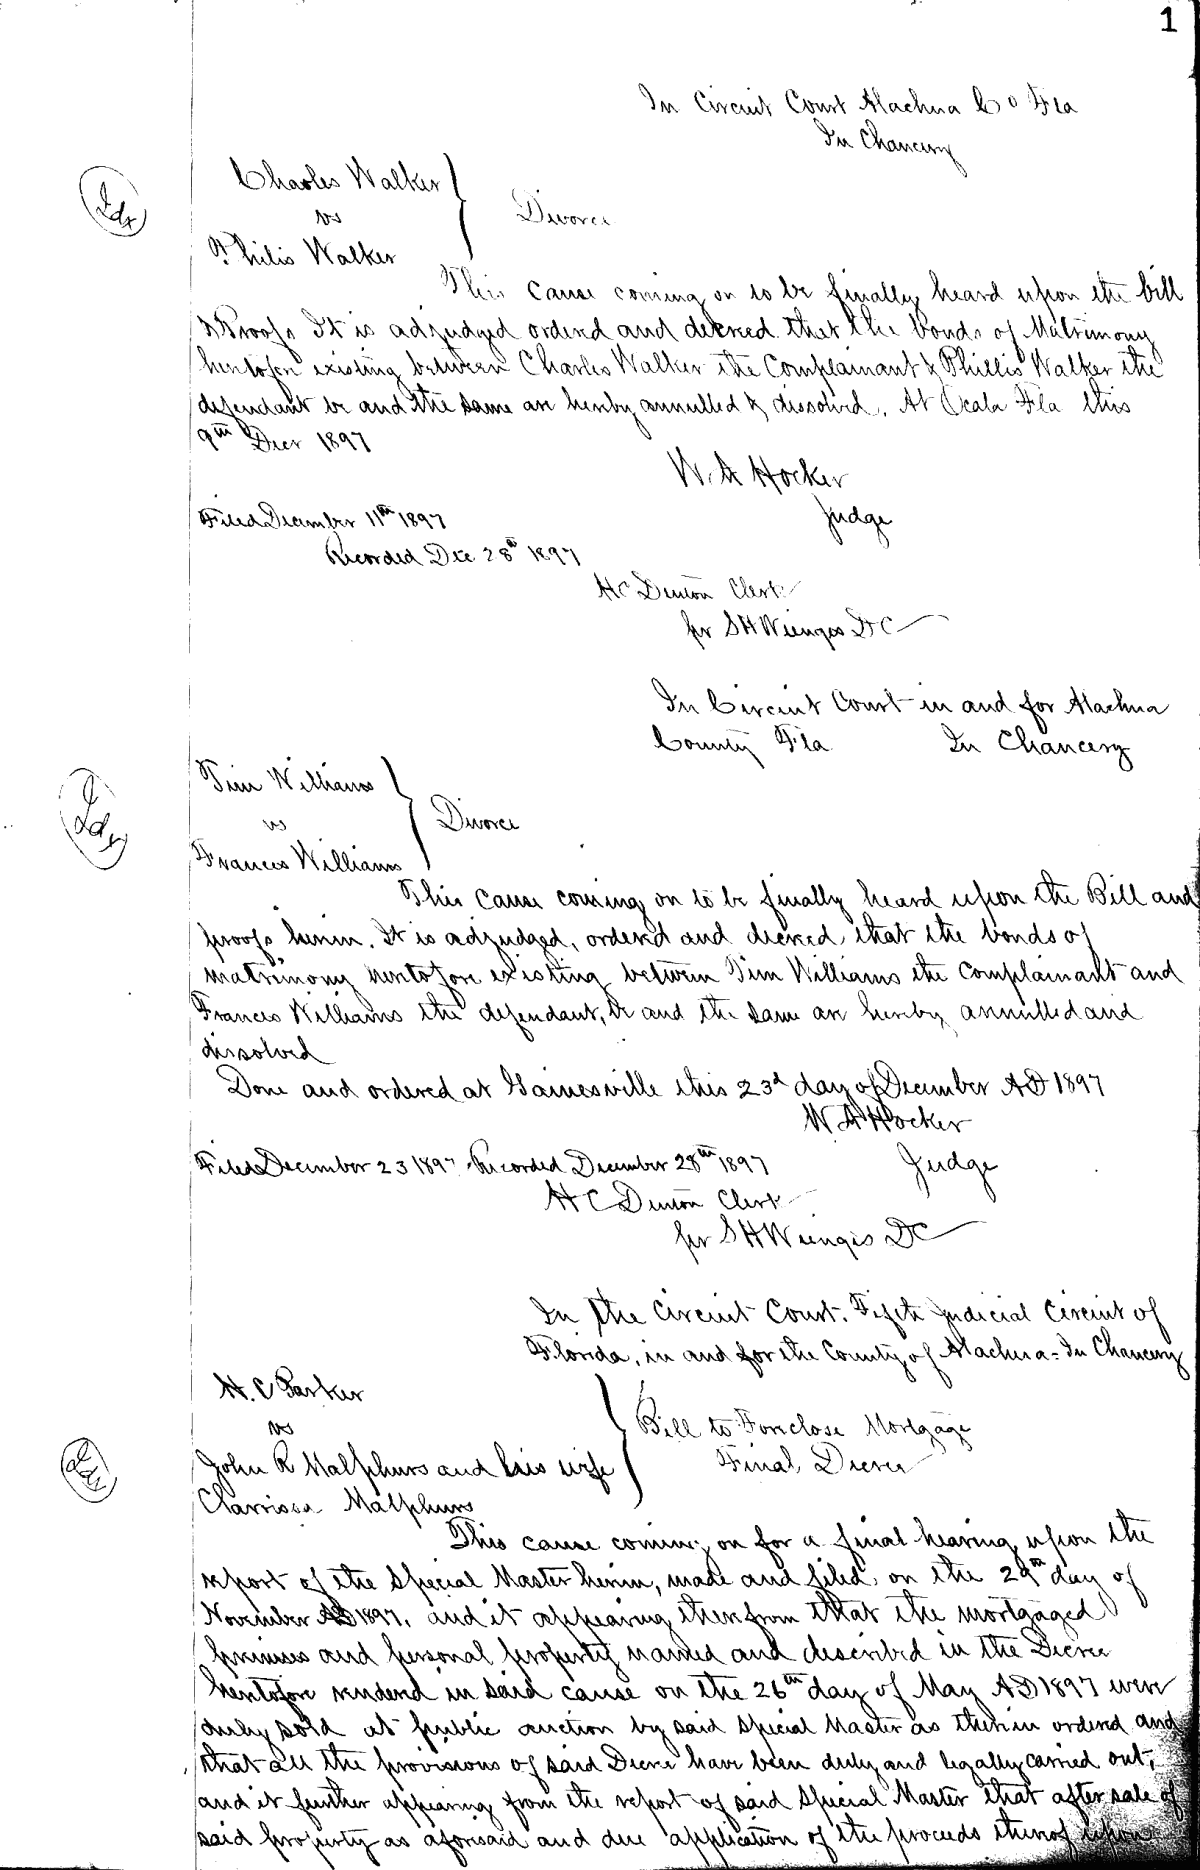 1
In Circuit Court Alachua Co Fla
In Chancery
Idx
Charles Walker
vs
Philis Walker
Divorce
This cause coming on to be finally heard upon the bill
& Proofs It is adjudged ordered and decreed that the bonds of Matrimony
heretofore existing between Charles Walker the Complainant & Phillis Walker the
defendant be and the same are hereby annulled & dissolved. At Ocala Fla this
9th Decr 1897
W. A Hocker
Judge
Filed December 11th 1897
Recorded Dec 28th 1897
H C Denton Clerk
per S H Wienges D C
In Circuit Court in and for Alachua
County Fla In Chancery
Idx
Tim Williams
vs
Frances Williams
Divorce
This cause coming on to be finally heard upon the Bill and
proofs herein. It is adjudged, ordered and decreed, that the bonds of
matrimony heretofore existing between Tim Williams the complainant and
Frances Williams the defendant, be and the same are hereby annulled and
dissolved
Done and ordered at Gainesville this 23d day of December AD 1897
W A Hocker
Judge
Filed December 23 1897 Recorded December 28th 1897
H C Denton Clerk
per S H Wienges DC
In the Circuit Court. Fifth Judicial Circuit of
Florida, in and for the County of Alachua - In Chancery
Idx
H. C Parker
vs
John R Malphurs and his wife
Clarrissa Malphurs
Bill to Foreclose Mortgage
Final Decree
This cause coming on for a final hearing upon the
report of the Special Master herein, made and filed on the 29th day of
November AD 1897, and it appearing therefrom that the mortgaged
premises and personal property named and described in the Decree
heretofore rendered in said cause on the 26th day of May AD 1897 were
duly sold at public auction by said Special Master as therein ordered and
that all the provisions of said Decree have been duly and legally carried out,
and it further appearing from the report of said Special Master that after sale of
said property as aforesaid and due application of the proceeds thereof upon